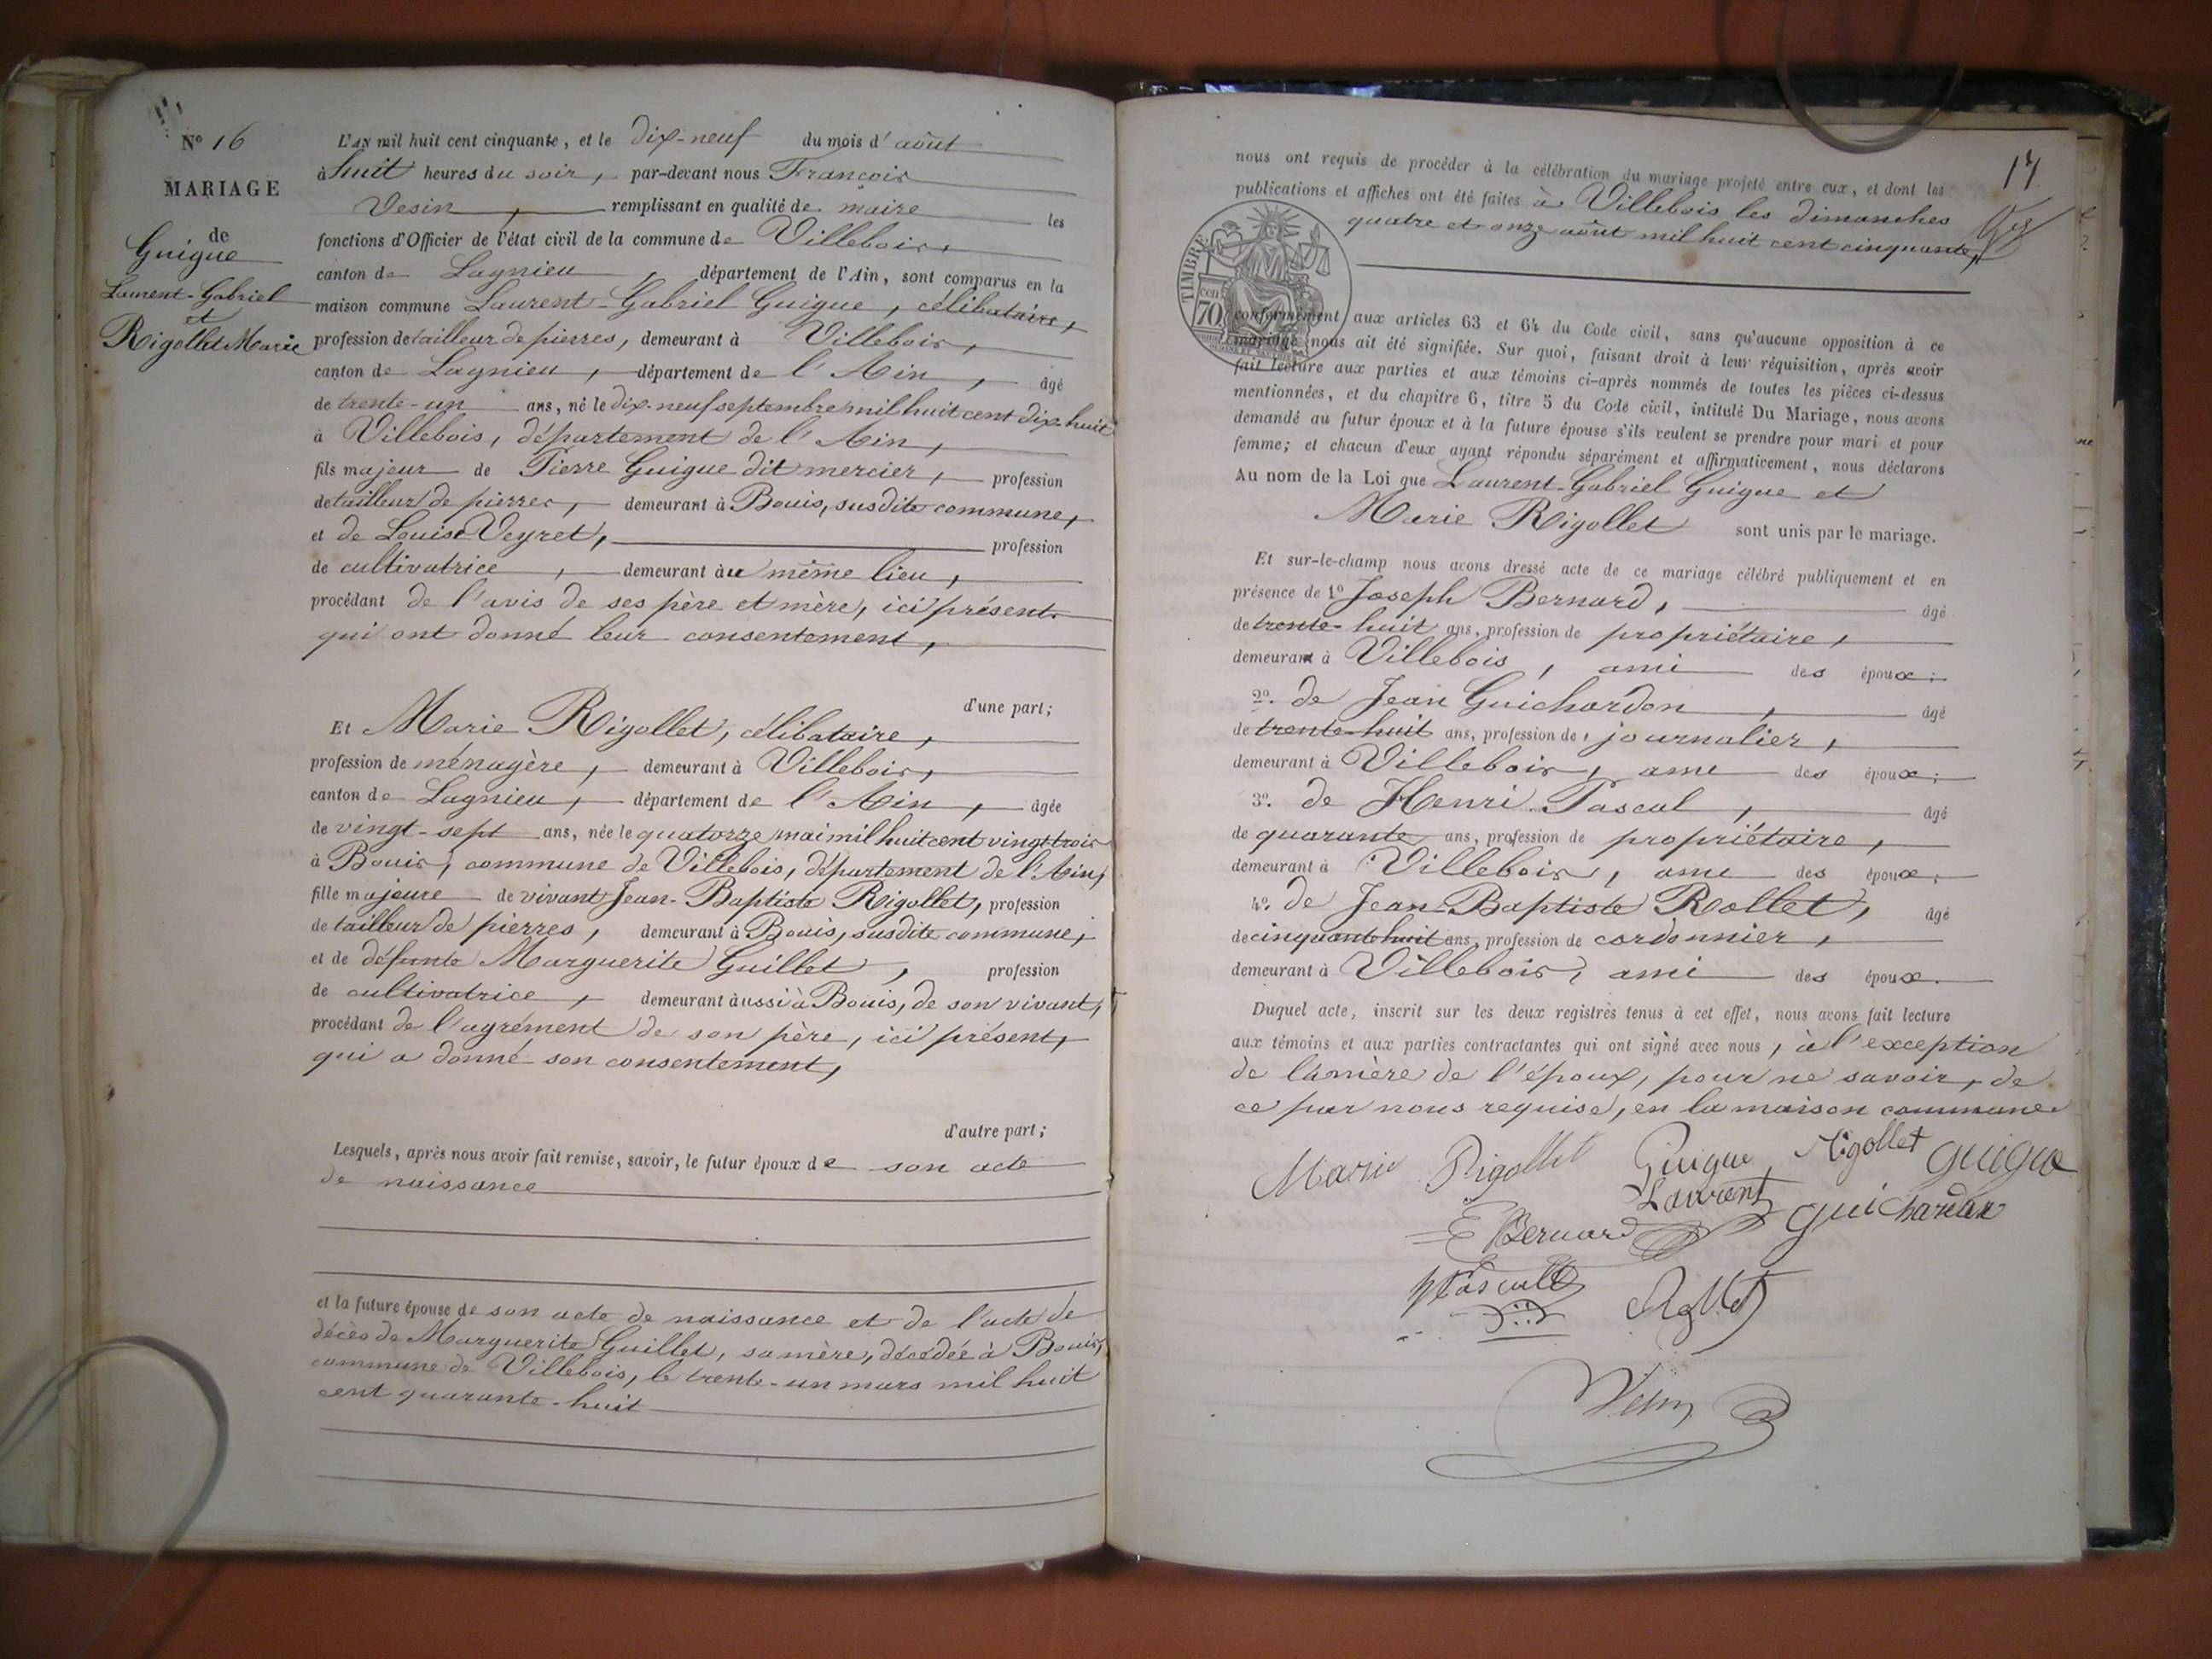 N.º 16
MARIAGE
de
Guigue
Laurent-Gabriel
et
Rigollet Marie
L'AN mil huit cent cinquante, et le dix-neuf du mois d'août
à huit heures du soir, par-devant nous François
Vesin, remplissant en qualité de maire les
fonctions d'Officier de l'état civil de la commune de Villebois,
canton de Lagnieu, département de l'Ain, sont comparus en la
maison commune Laurent-Gabriel Guigue, célibataire,
profession de tailleur de pierres, demeurant à Villebois,
canton de Lagnieu, département de l'Ain, âgé
de trente-un ans, né le dix-neuf septembre mil huit cent dix-huit
à Villebois, département de l'Ain,
fils majeur de Pierre Guigue dit mercier, profession
de tailleur de pierres, demeurant à Bouis, susdite commune,
et de Louise Veyret, profession
de cultivatrice, demeurant au même lieu,
procédant de l'avis de ses père et mère, ici présents
qui ont donné leur consentement,
d'une part;
Et Marie Rigollet, célibataire,
profession de ménagère, demeurant à Villebois,
canton de Lagnieu, département de l'Ain, âgée
de vingt-sept ans, née le quatorze mai mil huit cent vingt trois
à Bouis, commune de Villebois, département de l'Ain,
fille majeure de vivant Jean-Baptiste Rigollet, profession
de tailleur de pierres, demeurant à Bouis, susdite commune,
et de défunte Marguerite Guillet, profession
de cultivatrice, demeurant aussi à Bouis, de son vivant,
procédant de l'agrément de son père, ici présent,
qui a donné son consentement,
d'autre part;
Lesquels, après nous avoir fait remise, savoir, le futur époux de son acte
de naissance
et la future épouse de son acte de naissance et de l'acte de
décès de Marguerite Guillet, sa mère, décédée à Bouis,
commune de Villebois, le trente-un mars mil huit
cent quarante-huit
17
nous ont requis de procéder à la célébration du mariage projeté entre eux, et dont les
publications et affiches ont été faites à Villebois les dimanches
quatre et onze août mil huit cent cinquante,
TIMBRE
70 cen
conformément aux articles 63 et 64 du Code civil, sans qu'aucune opposition à ce
mariage nous ait été signifiée. Sur quoi, faisant droit à leur réquisition, après avoir
fait lecture aux parties et aux témoins ci-après nommés de toutes les pièces ci-dessus
mentionnées, et du chapitre 6, titre 5 du Code civil, intitulé Du Mariage, nous avons
demandé au futur époux et à la future épouse s'ils veulent se prendre pour mari et pour
femme; et chacun d'eux ayant répondu séparément et affirmativement, nous déclarons
Au nom de la Loi que Laurent-Gabriel Guigue et
Marie Rigollet sont unis par le mariage.
Et sur-le-champ nous avons dressé acte de ce mariage célébré publiquement et en
présence de 1º Joseph Bernard, âgé
de trente-huit ans, profession de propriétaire,
demeurant à Villebois, ami des époux;
2º. de Jean Guichardon, âgé
de trente-huit ans, profession de journalier,
demeurant à Villebois, ami des époux;
3º. de Henri Pascal, âgé
de quarante ans, profession de propriétaire,
demeurant à Villebois, ami des époux;
4º. de Jean-Baptiste Rollet, âgé
de cinquante huit ans, profession de cordonnier,
demeurant à Villebois, ami des époux.
Duquel acte, inscrit sur les deux registres tenus à cet effet, nous avons fait lecture
aux témoins et aux parties contractantes qui ont signé avec nous, à l'exception
de la mère de l'époux, pour ne savoir, de
ce par nous requise, en la maison commune
Marie Rigollet Guigue Rigollet guigue
Laurent
Bernard guichardon
Pascal Rollet
Vesin